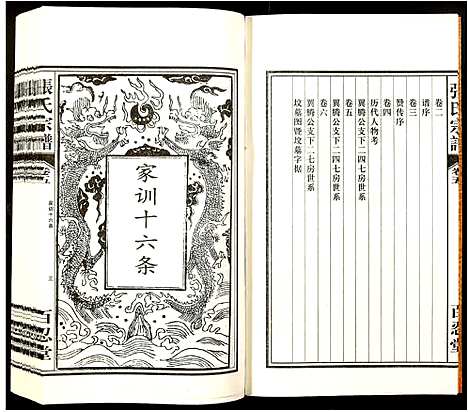 卷二
谱序
卷三
赞传序
卷四
历代人物考
卷五
翼腾公支下二四七房世系
翼腾公支下二七房世系
卷六
坟墓图暨坟墓字据
張氏宗譜
卷五
百忍堂
家训十六条
張氏宗譜
卷五
家训十六条
三
百忍堂